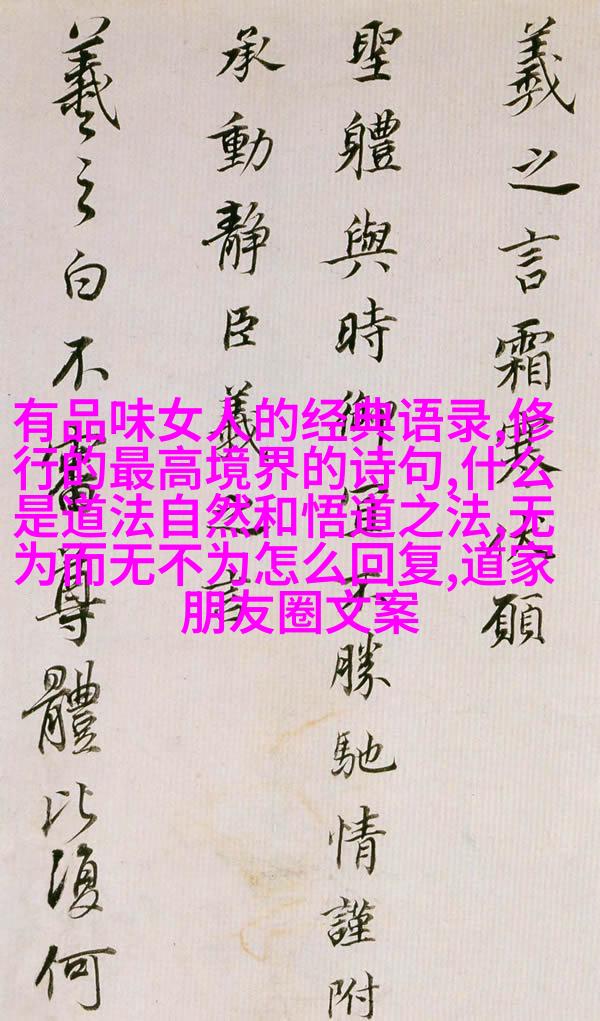 羲之言霜寒伏願
聖體與時御宜不勝馳情謹附
承動靜臣羲之言
羲之白不審尊體比復何
有品味女人的经典语录,修
行的最高境界的诗句,什么
是道法自然和悟道之法,无
为而无不为怎么回复,道家
朋友圈文案